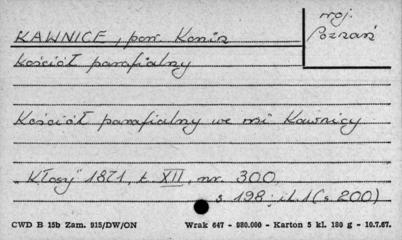 woj.
KAWNICE, pow. Konin
Poznań
kościół parafialny
Kościół parafialny we wsi Kawnicy
"Kłosy" 1871, t. XII, nr. 300,
s. 198; il. 1 (s. 200)
CWD B 15b Zam. 915/DW/ON Wrak 647 - 980.000 - Karton 5 kl. 180 g - 10.7.67.